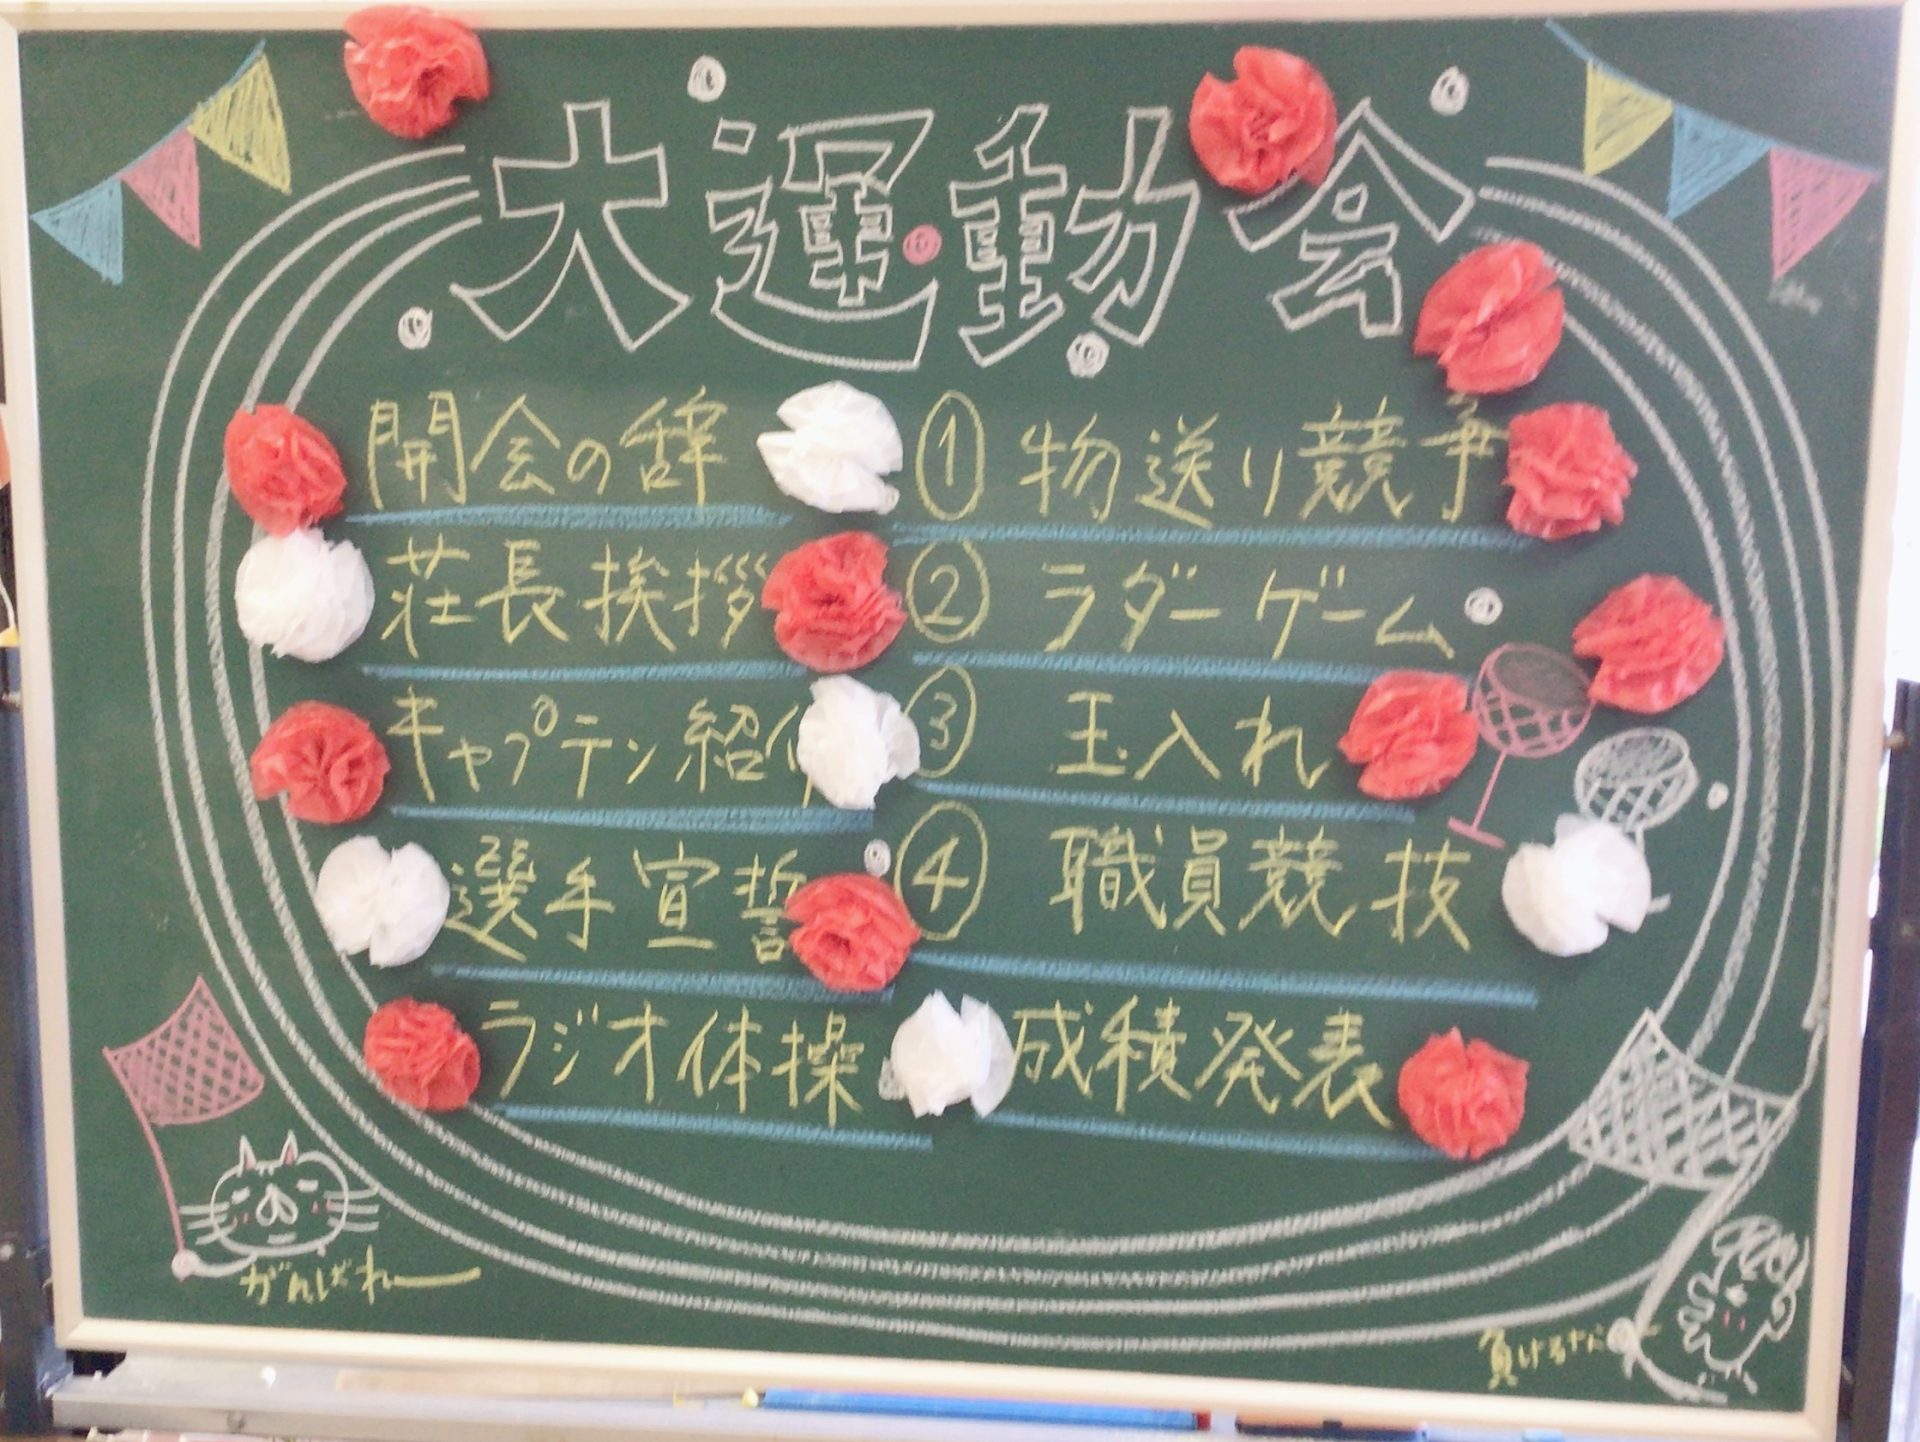 大運動会
開会の辞
荘長挨拶
キャプテン紹介
選手宣誓
ラジオ体操
① 物送り競争
② ラダーゲーム
③ 玉入れ
④ 職員競技
成績発表
がんばれー
負けるなー